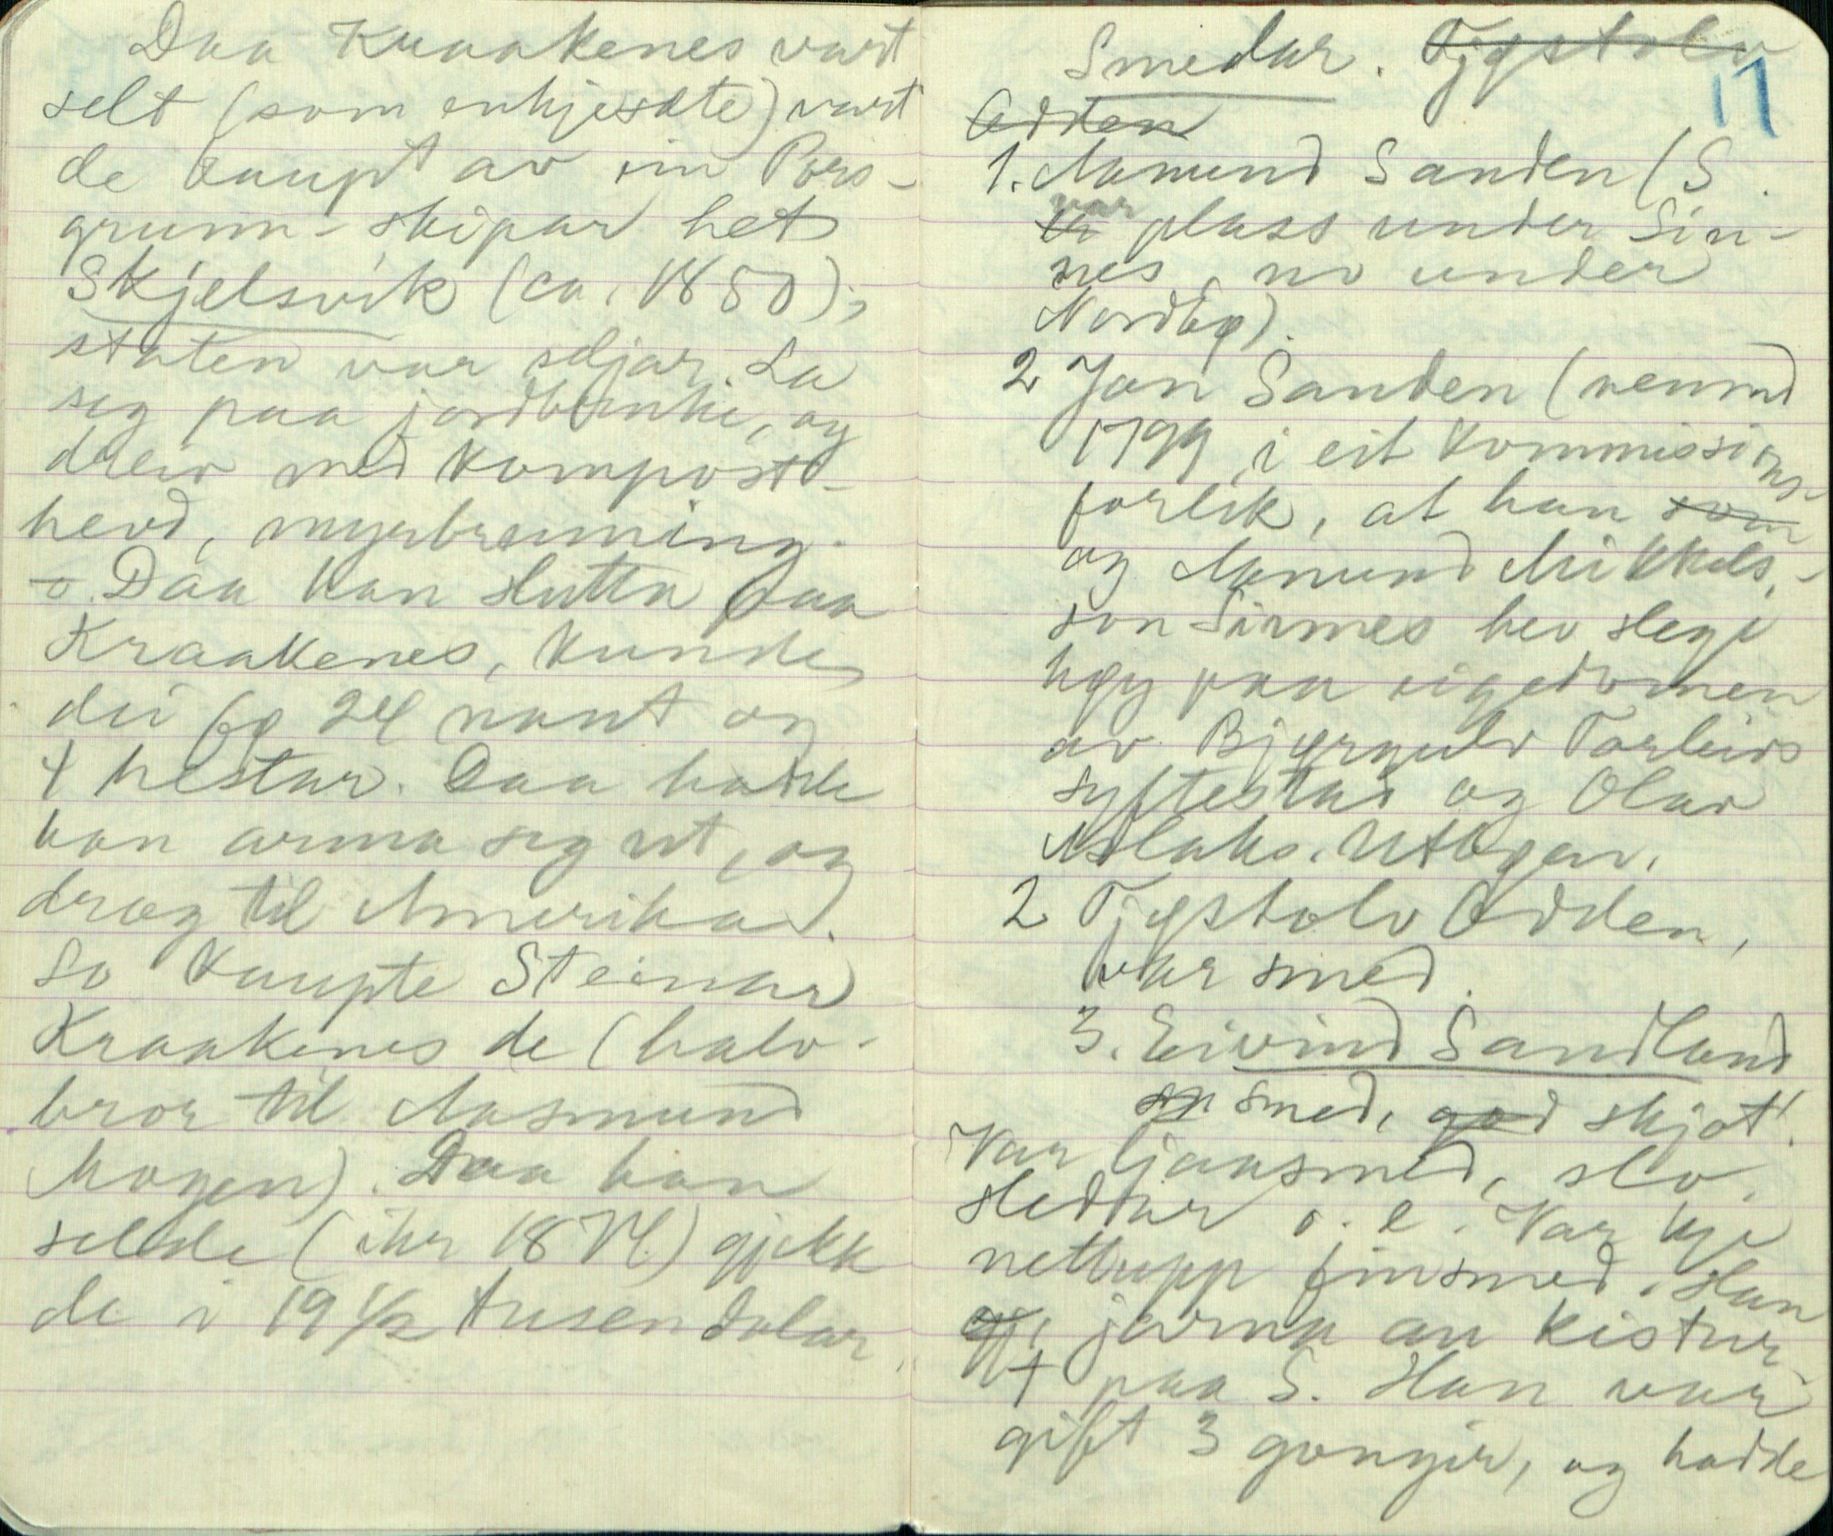 Daa Kraakenes vart
selt (som enkjesæte) vart
de kaupt av ein Pors-
grunn-skipar het
Skjelsvik (ca. 1850);
staten var seljar. La
seg paa jordbruke, og
dreiv med kompost-
hevd, myrbrenning.
- Daa han slutta paa
Kraakenes, kunde
dei fø 24 naut og
4 hestar. Daa hadde
han arma seg ut, og
drog til Amerika.
So kaupte Steinar
Kraakenes de (halv-
bror til Aasmund
Mogen). Daa han
selde (ihr 1876) gjekk
de i 19 1/2 tusen dalar.
Smedar. Tjøstolv
17
Odden
1. Aamund Sanden (S.
er var plass under Sin-
nes, no under
Nordbø).
2 Jon Sanden (nemnd
1799 i eit Kommissions-
forlik, at han som
og Amund Mikkels-
son Sinnes hev slegi
høy paa eigedomen
av Bjørgulv Torleivs
Syftestad og Olav
Aslaks. Utbøen.
2 Tjøstolv Odden,
var smed.
3. Eivind Sandland
smed, god skjot!
Var ljaasmed, slo
sleddar o. l. Var kje
nettupp finsmed. Han
jarna au kistur
+ paa S. Han var
gift 3 gonger, og hadde